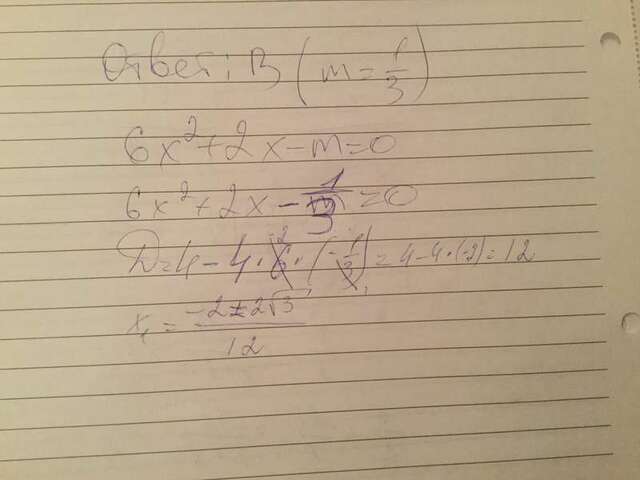 Ответ: В (m = 1/3)
6x² + 2x - m = 0
6x² + 2x - 1/3 = 0
D = 4 - 4 · 6 · (-1/3) = 4 - 4 · (-2) = 12
x₁ = (-2 ± 2√3)/12